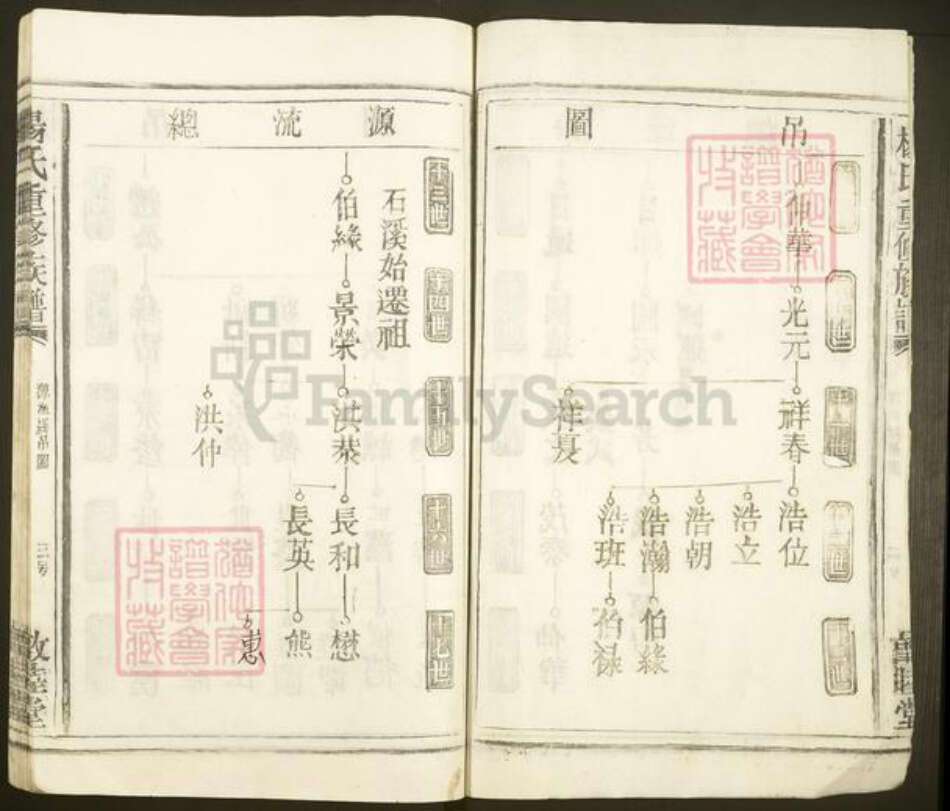 楊氏重修族譜
敦睦堂
圖
吊
仲華
光元
祥春
祥夏
浩位
浩立
浩朝
浩瀚
浩班
伯緣
伯祿
源流總
十三世
第四世
十五世
十六世
十七世
石溪始遷祖
伯緣
景榮
洪恭
洪仲
長和
長英
懋
熊
蕙
楊氏重修族譜
源流總吊圖
敦睦堂
猶他家譜學會收藏
猶他家譜學會收藏
FamilySearch